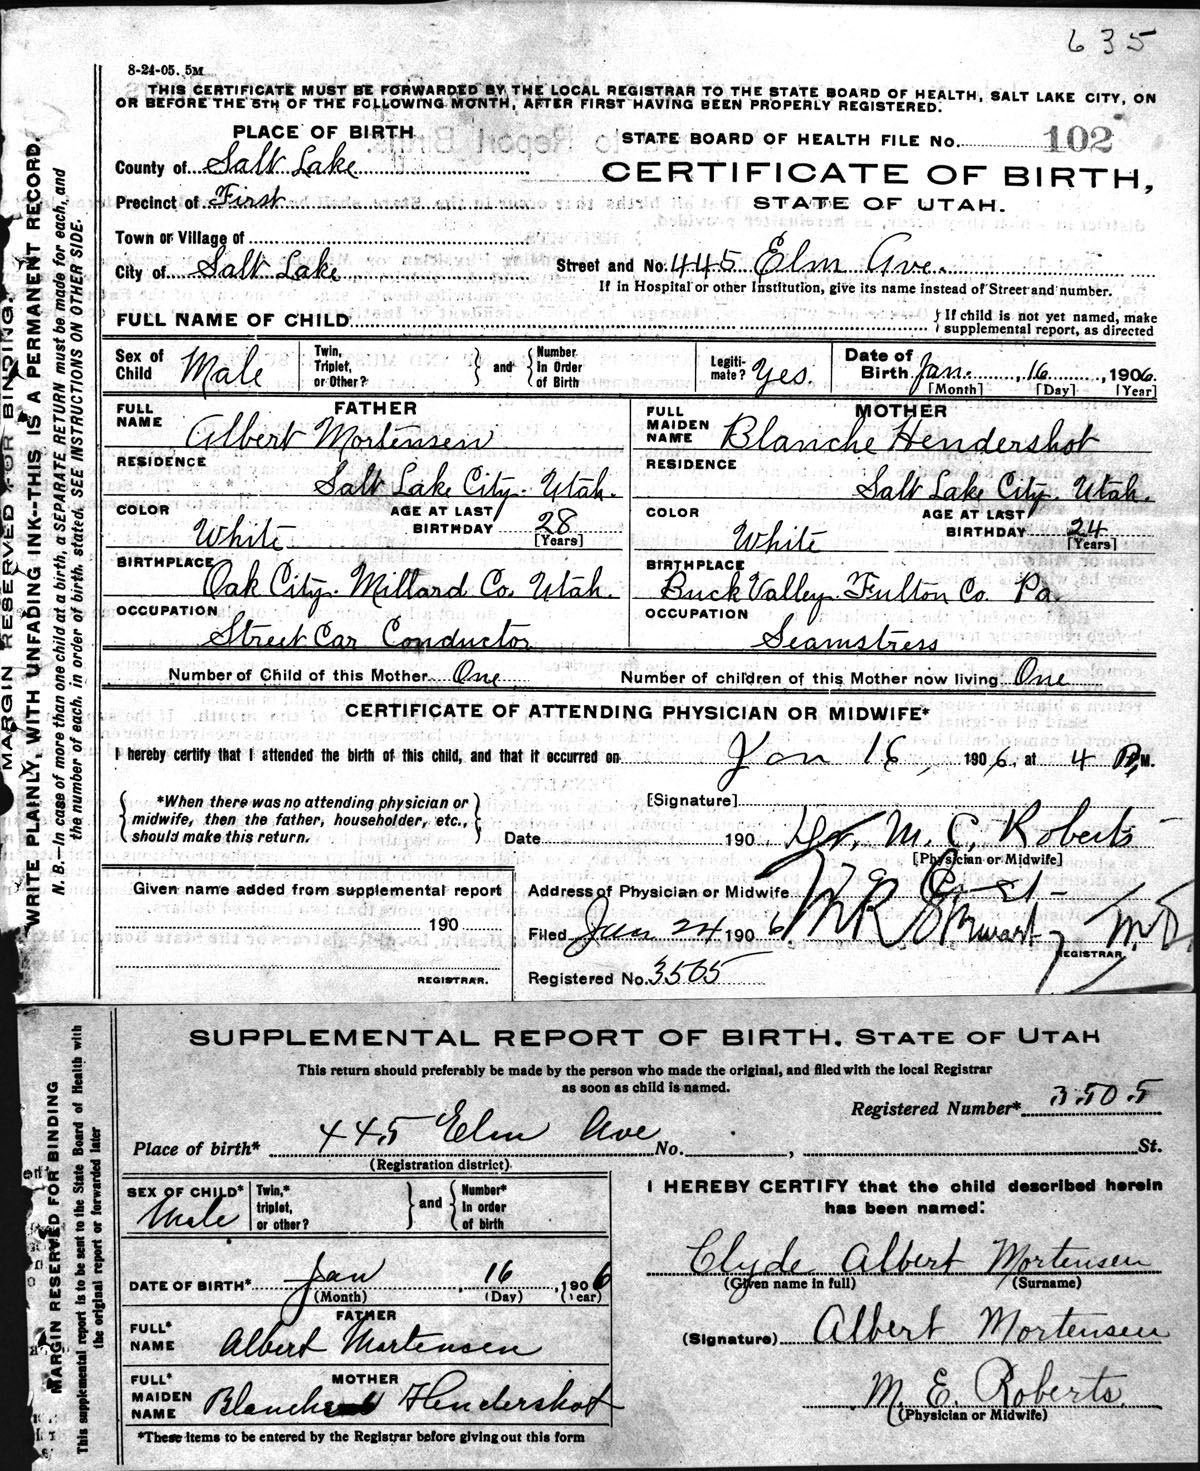 635
8-24-05. 5M
THIS CERTIFICATE MUST BE FORWARDED BY THE LOCAL REGISTRAR TO THE STATE BOARD OF HEALTH, SALT LAKE CITY, ON
OR BEFORE THE 5TH OF THE FOLLOWING MONTH, AFTER FIRST HAVING BEEN PROPERLY REGISTERED.
PLACE OF BIRTH
STATE BOARD OF HEALTH FILE No. 102
County of Salt Lake
CERTIFICATE OF BIRTH,
Precinct of First
STATE OF UTAH.
Town or Village of
City of Salt Lake Street and No. 445 Elm Ave.
If in Hospital or other Institution, give its name instead of Street and number.
FULL NAME OF CHILD { If child is not yet named, make
supplemental report, as directed
Sex of Child Male Twin, Triplet, or Other? } and { Number In Order of Birth Legiti-mate? Yes. Date of Birth Jan. 16, 1906.
[Month] [Day] [Year]
FATHER
FULL NAME Albert Mortensen
RESIDENCE
Salt Lake City. Utah.
COLOR White AGE AT LAST BIRTHDAY 28
[Years]
BIRTHPLACE Oak City. Millard Co. Utah.
OCCUPATION
Street Car Conductor
MOTHER
FULL MAIDEN NAME Blanche Hendershot
RESIDENCE
Salt Lake City. Utah.
COLOR White AGE AT LAST BIRTHDAY 24
[Years]
BIRTHPLACE
Buck Valley. Fulton Co. Pa.
OCCUPATION
Seamstress
Number of Child of this Mother One Number of children of this Mother now living One
CERTIFICATE OF ATTENDING PHYSICIAN OR MIDWIFE*
I hereby certify that I attended the birth of this child, and that it occurred on Jan 16, 1906, at 4 P.M.
{ *When there was no attending physician or
midwife, then the father, householder, etc.,
should make this return. }
[Signature]
Date 190 Dr. M. C. Roberts
[Physician or Midwife]
Given name added from supplemental report
190
REGISTRAR.
Address of Physician or Midwife
Filed Jan 24 1906 M R Stewart M.D.
REGISTRAR.
Registered No. 3505
MARGIN RESERVED FOR BINDING.
WRITE PLAINLY, WITH UNFADING INK--THIS IS A PERMANENT RECORD.
N. B.—In case of more than one child at a birth, a SEPARATE RETURN must be made for each, and
the number of each, in order of birth, stated. SEE INSTRUCTIONS ON OTHER SIDE.
SUPPLEMENTAL REPORT OF BIRTH, STATE OF UTAH
This return should preferably be made by the person who made the original, and filed with the local Registrar
as soon as child is named.
Registered Number* 3505
Place of birth* 445 Elm Ave No. , St.
(Registration district)
SEX OF CHILD* Male Twin,* triplet, or other? } and { Number* In order of birth
DATE OF BIRTH* Jan 16, 1906
(Month) (Day) (Year)
FATHER
FULL* NAME Albert Mortensen
MOTHER
FULL* MAIDEN NAME Blanche Hendershot
*These items to be entered by the Registrar before giving out this form
I HEREBY CERTIFY that the child described herein
has been named:
Clyde Albert Mortensen
(Given name in full) (Surname)
(Signature) Albert Mortensen
M. E. Roberts
(Physician or Midwife)
MARGIN RESERVED FOR BINDING
This supplemental report is to be sent to the State Board of Health with
the original report or forwarded later